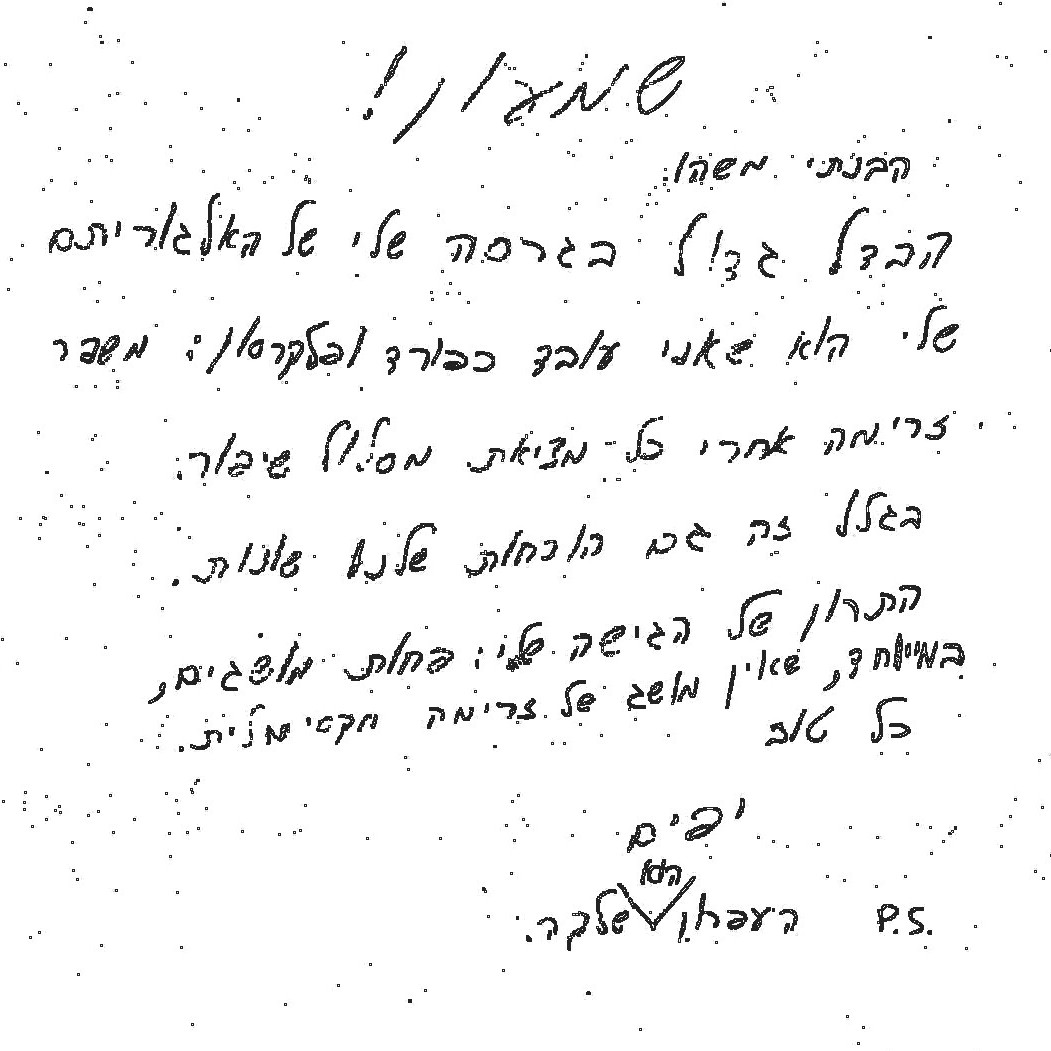 שמעון!
הבנתי משהו.
הבדל גדול בגרסה שלי של האלגוריתם
שלי הוא שאני עובד כפורד ופלקרסון: משפר
זרימה אחרי כל מציאת מסלול שיפור.
בגלל זה גם הוכחות שלנו שונות.
התרון של הגישה שלי: פחות מושגים,
במיוחד, שאין מושג של זרימה מקסימלית.
כל טוב
יפים
הוא
P.S. העפרון שלבה.